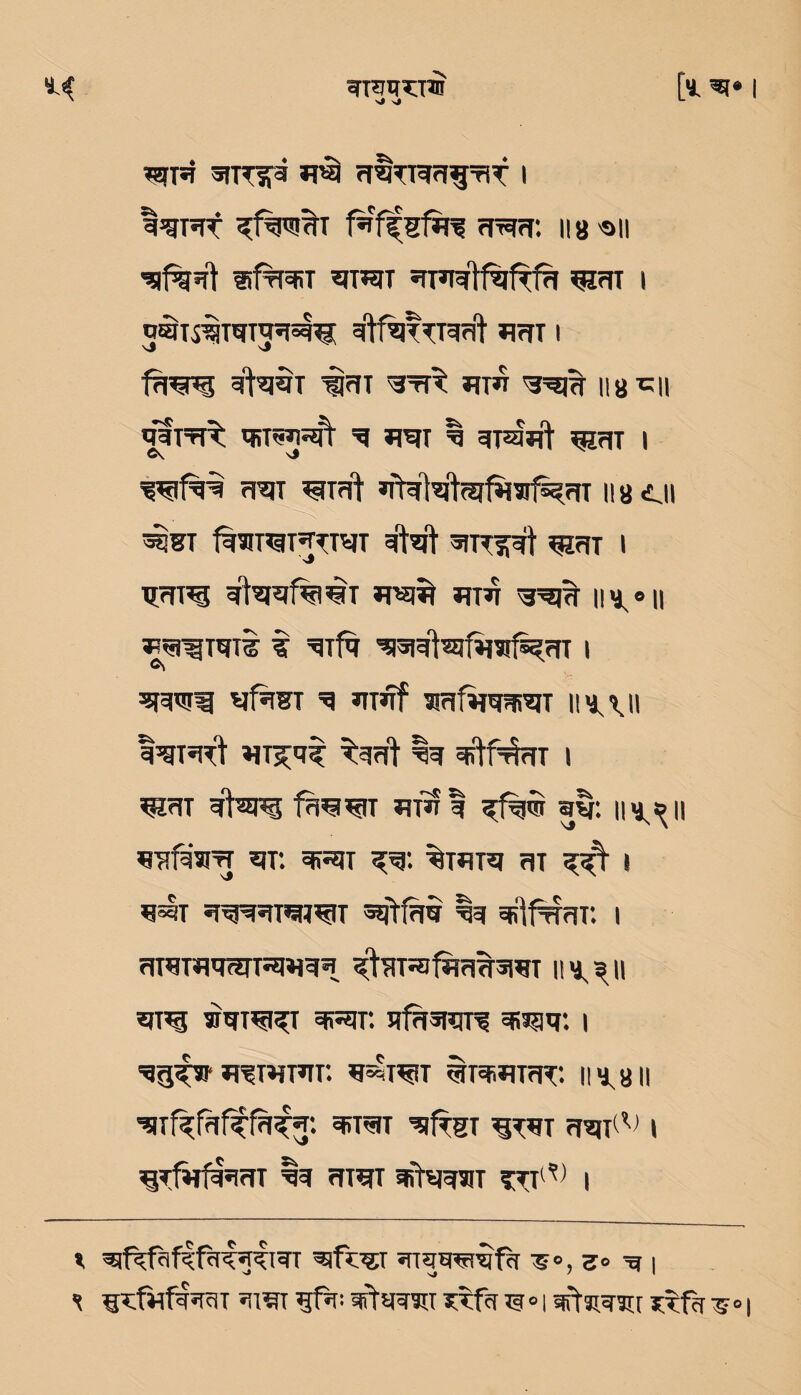 ५६ वायुपुराणे [५ अ० ।
स्थानं जारद्गवं मध्ये तथैरावतमुत्तरं ।
वैश्वानरं दक्षिणतो निर्दिष्टमिह तत्त्वतः ॥४७॥
अश्विनी कृत्तिका याम्या नागवीथीरिति स्मृता ।
पुष्योऽश्लेषापुनर्वस्वू वीथीरैरावती मता ।
तिस्रस्तु वीथयो ह्येता उत्तरे मार्ग उच्यते ॥४८॥
पूर्वोत्तरे फाल्गुन्यौ च मघा चैवार्यभी स्मृता ।
हस्तश्चित्रा तथा स्वाती गोवीथीत्यभिशब्दिता ॥४९॥
ज्येष्ठा विशाखानुराधा वीथी जारद्गवी स्मृता ।
एतास्तु वीथयस्तिस्रो मध्यमे मार्ग उच्यते ॥५०॥
मूलाषाढे द्वे चापि अजवीथ्यभिशब्दिता ।
श्रवणञ्च धनिष्ठा च मार्गी शतभिषक्तथा ॥५१॥
वैश्वानरी भाद्रपदे रेवती चैव कीर्त्तिता ।
स्मृता वीथ्यस्तु तिस्रस्ता मार्गे वै दक्षिणे बुधैः ॥५२॥
सप्तविंशत्तु याः कन्या दक्षः सोमाय ता ददौ ।
सर्वा नक्षत्रनाम्न्यस्ता ज्योतिषे चैव कीर्त्तिताः ।
तासामपत्यान्यभवन् दीप्तान्यमिततेजसा ॥५३॥
यास्तु शेषास्तदा कन्याः प्रतिजग्राह कश्यपः ।
चतुर्द्दश महाभागाः सर्वास्ता लोकमातरः ॥५४॥
अदितिर्दितिर्दनुः काला अरिष्टा सुरसा तथा(१) ।
सुरभिर्विनता चैव ताम्रा क्रोधवशा इरा(२) ।
१ अरिष्टा ङ०, ट० च ।
२ सुरभिर्विनता क्रोधवशा इरेति ख० । क्रोधवशा इरेति ङ० ।